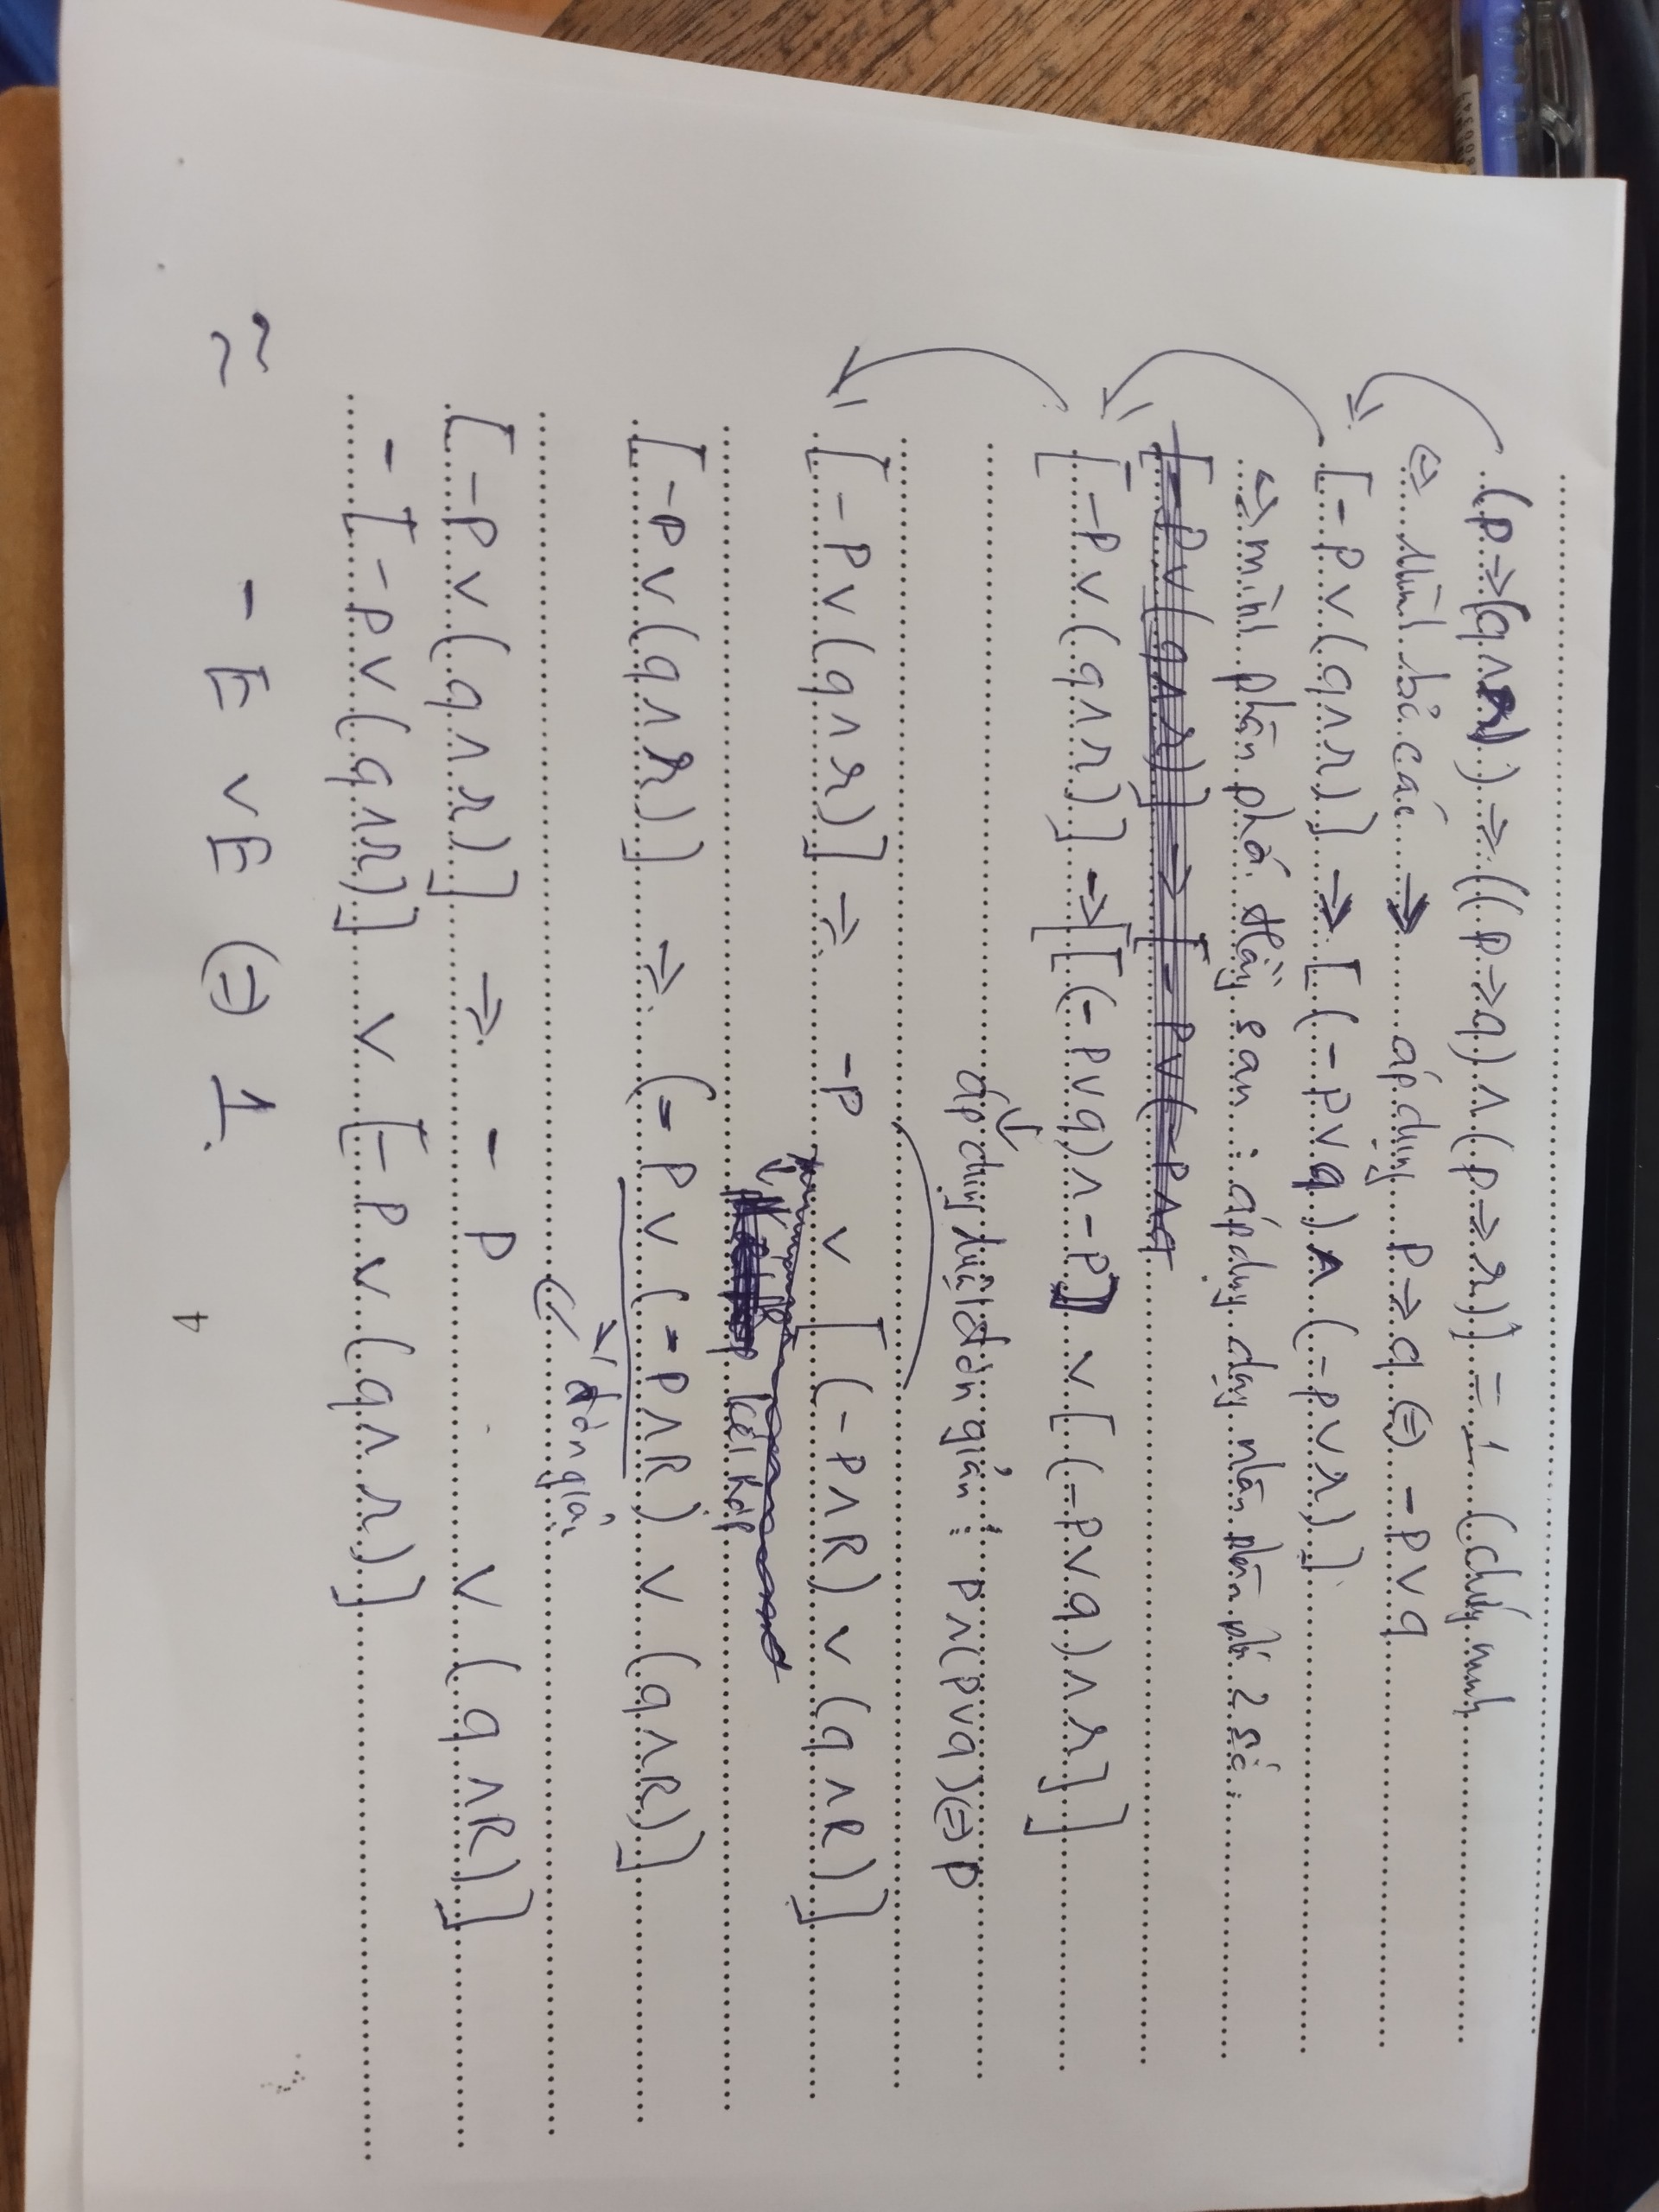 (p⇒(q∧r))⇒((p⇒q)∧(p⇒r)) = 1 (chứng minh
⇔ Mình bỏ các ⇒ áp dụng p⇒q ⇔ -p∨q
[-p∨(q∧r)] ⇒ [(-p∨q)∧(-p∨r)]
⇔ mình phân phá đẩy sau: áp dụng nhân phân phá 2 số:
[-p∨(q∧r)] ⇒ [[(-p∨q)∧-p] ∨ [(-p∨q)∧r]]
áp dụng luật đơn giản: p∧(p∨q)⇔p
[-p∨(q∧r)] ⇒ -p ∨ [(-p∧R)∨(q∧R)]
kết hợp
[-p∨(q∧r)] ⇒ (-p∨(-p∧R)∨(q∧R)]
đơn giản
[-p∨(q∧r)] ⇒ -p ∨(q∧R)]
-[-p∨(q∧r)] ∨ [-p∨(q∧r)]
~ -E∨E ⇔ 1
4